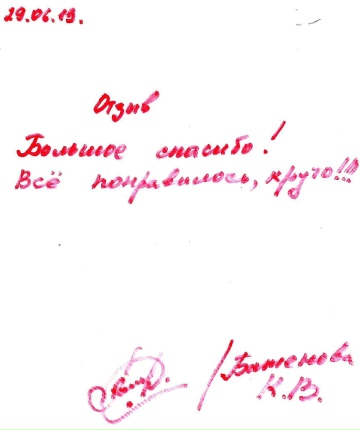 29.06.19.
Отзыв
Большое спасибо!
Всё понравилось, круто!!!
/Баженова
К.В.